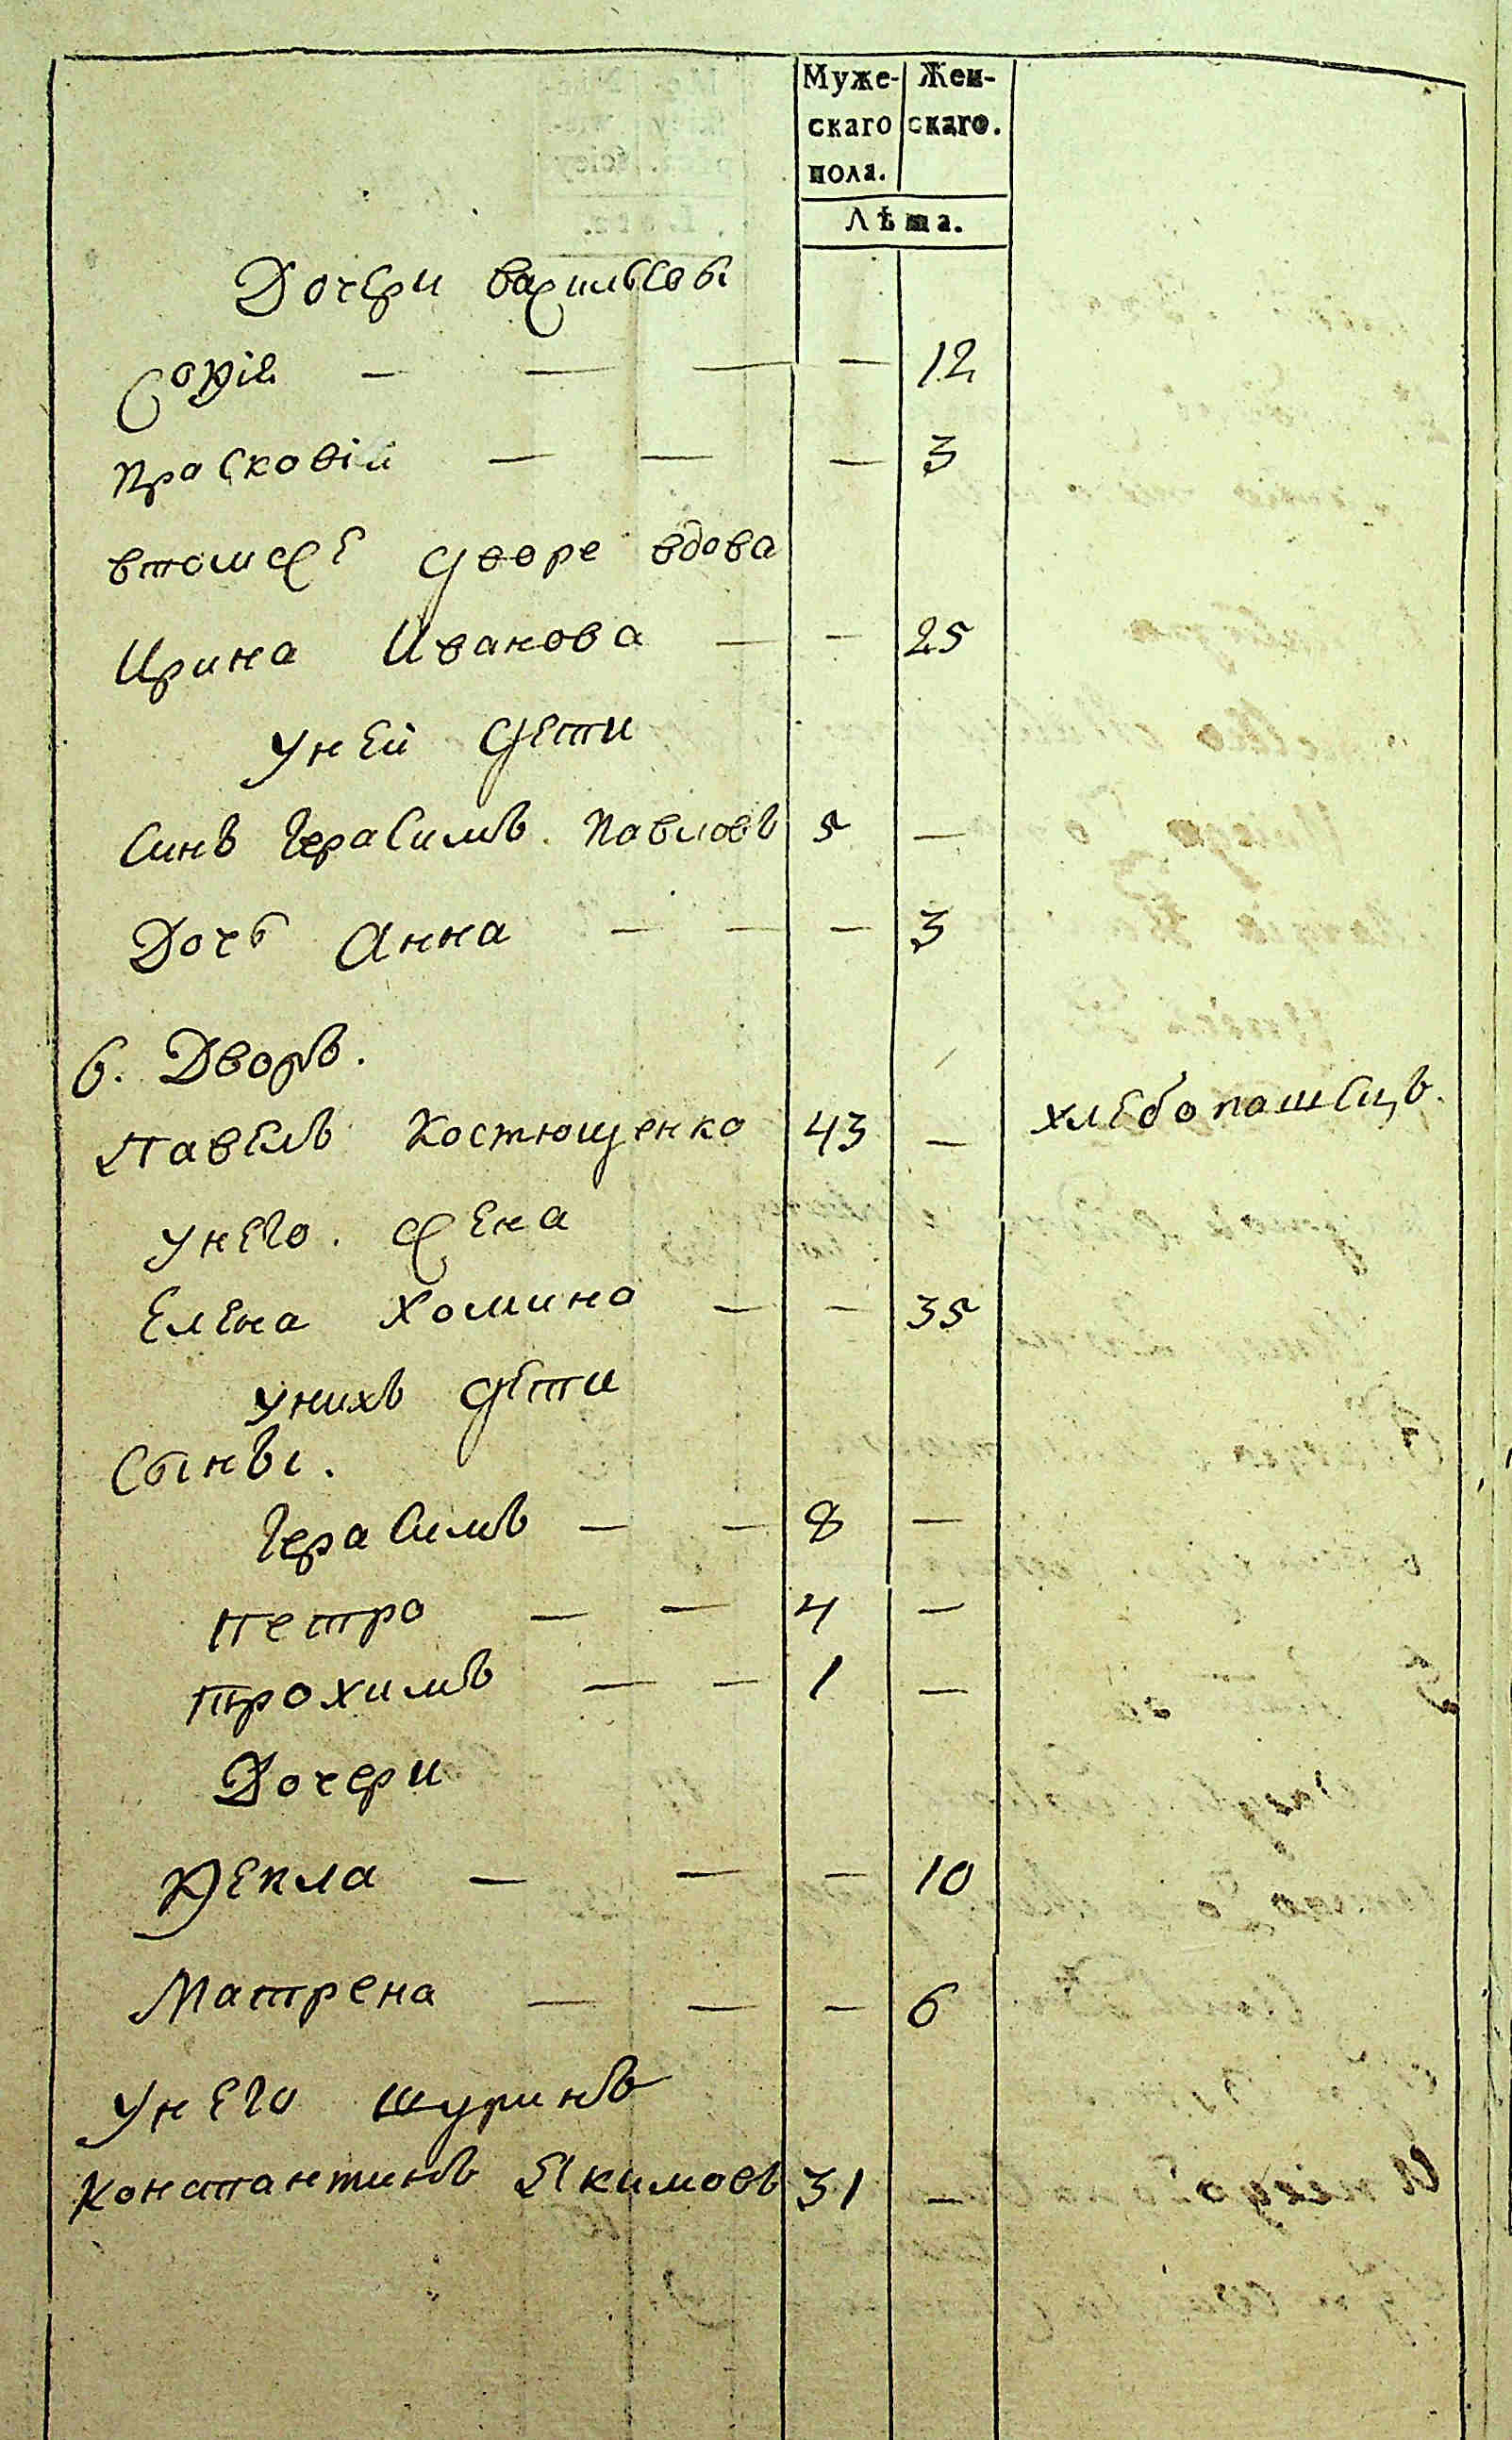 Муже- Жен-
скаго скаго.
пола.
Лѣта.
Дочери васильевы
Софія — — — — 12
Прасковія — — — 3
втомже дворе вдова
Ирина Иванова — — 25
Уней дети
Синъ Герасимъ. Павловъ 5 —
Дочь Анна — — — 3
6. Дворъ.
Павелъ Костющенко 43 — хлебопашецъ.
унего. жена
Елена Хомина — — 35
унихъ дети
Сынъı.
Герасимъ — — 8 —
Петро — — 4 —
Трохимъ — — 1 —
Дочери
Фекла — — — 10
Матрена — — — 6
Унего шуринъ
Константинъ Якимовъ 31 —